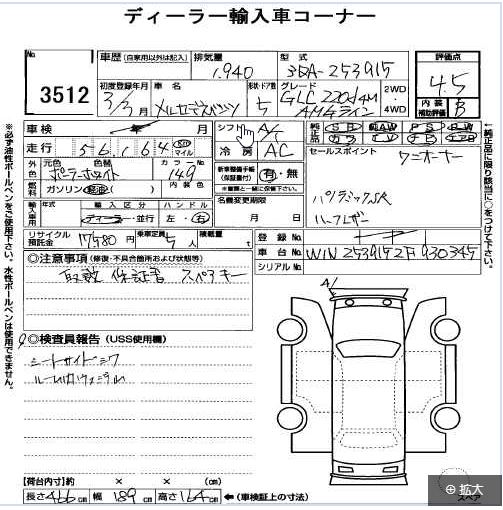 ディーラー輸入車コーナー
No. 3512
車歴 (自家用以外は記入)
排気量 1,940
型式 3DA-253915
評価点 4.5
内装補助評価 B
初度登録年月 3/3月
車名 メルセデスベンツ
形状・ドア数 5
グレード GLC 220d 4M AMGライン
2WD
4WD
車検 年 月
走行 56,164 km マイル
シフト A/T
冷房 AC
純正品 SR AW PS PW
セールスポイント ワンオーナー
外色 元色 ポーラーホワイト 色替 カラーNo. 149
燃料 ガソリン 軽油 内装色
新車整備手帳(保証書付) 有・無
※書類と一緒に保管下さい。
パノラミックSR
ハーフレザー
輸入車用 年式 輸入区分 ディーラー・並行 ハンドル 左・右
名義変更期限 月 日
リサイクル預託金 17580円 乗車定員 5人 積載量 t
登録No.
車台No. W1N 2539152F930345
シリアルNo.
◎注意事項 (修復・不具合箇所および状態等)
取説 保証書 スペアキー
◎検査員報告 (USS使用欄)
シートサイドシワ
【荷台内寸】約 × × (cm)
長さ 466cm 幅 189cm 高さ 164cm ←(車検証上の寸法)
※必ず油性ボールペンをご使用下さい。水性ボールペンは使用できません。
←純正品に限り該当に○をつけて下さい。
A1
スペア
拡大